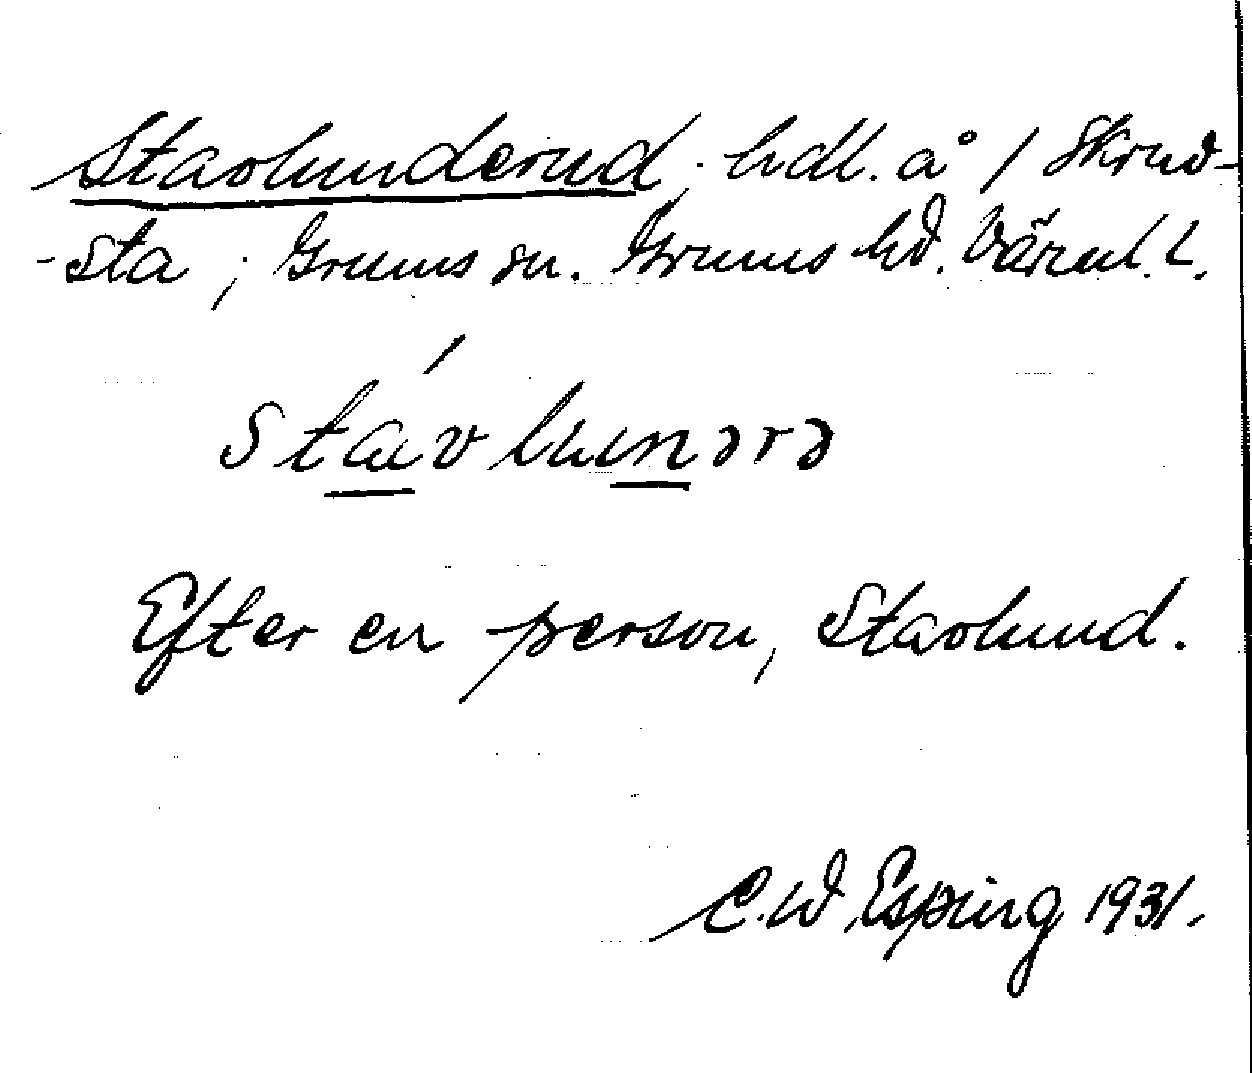 Stavlunderud, hdl. å 1 Skrud-
-sta, Grums sn. Grums hd. Värml. L.
stávlunərə
Efter en person, Stavlund.
C. W. Esping 1931.